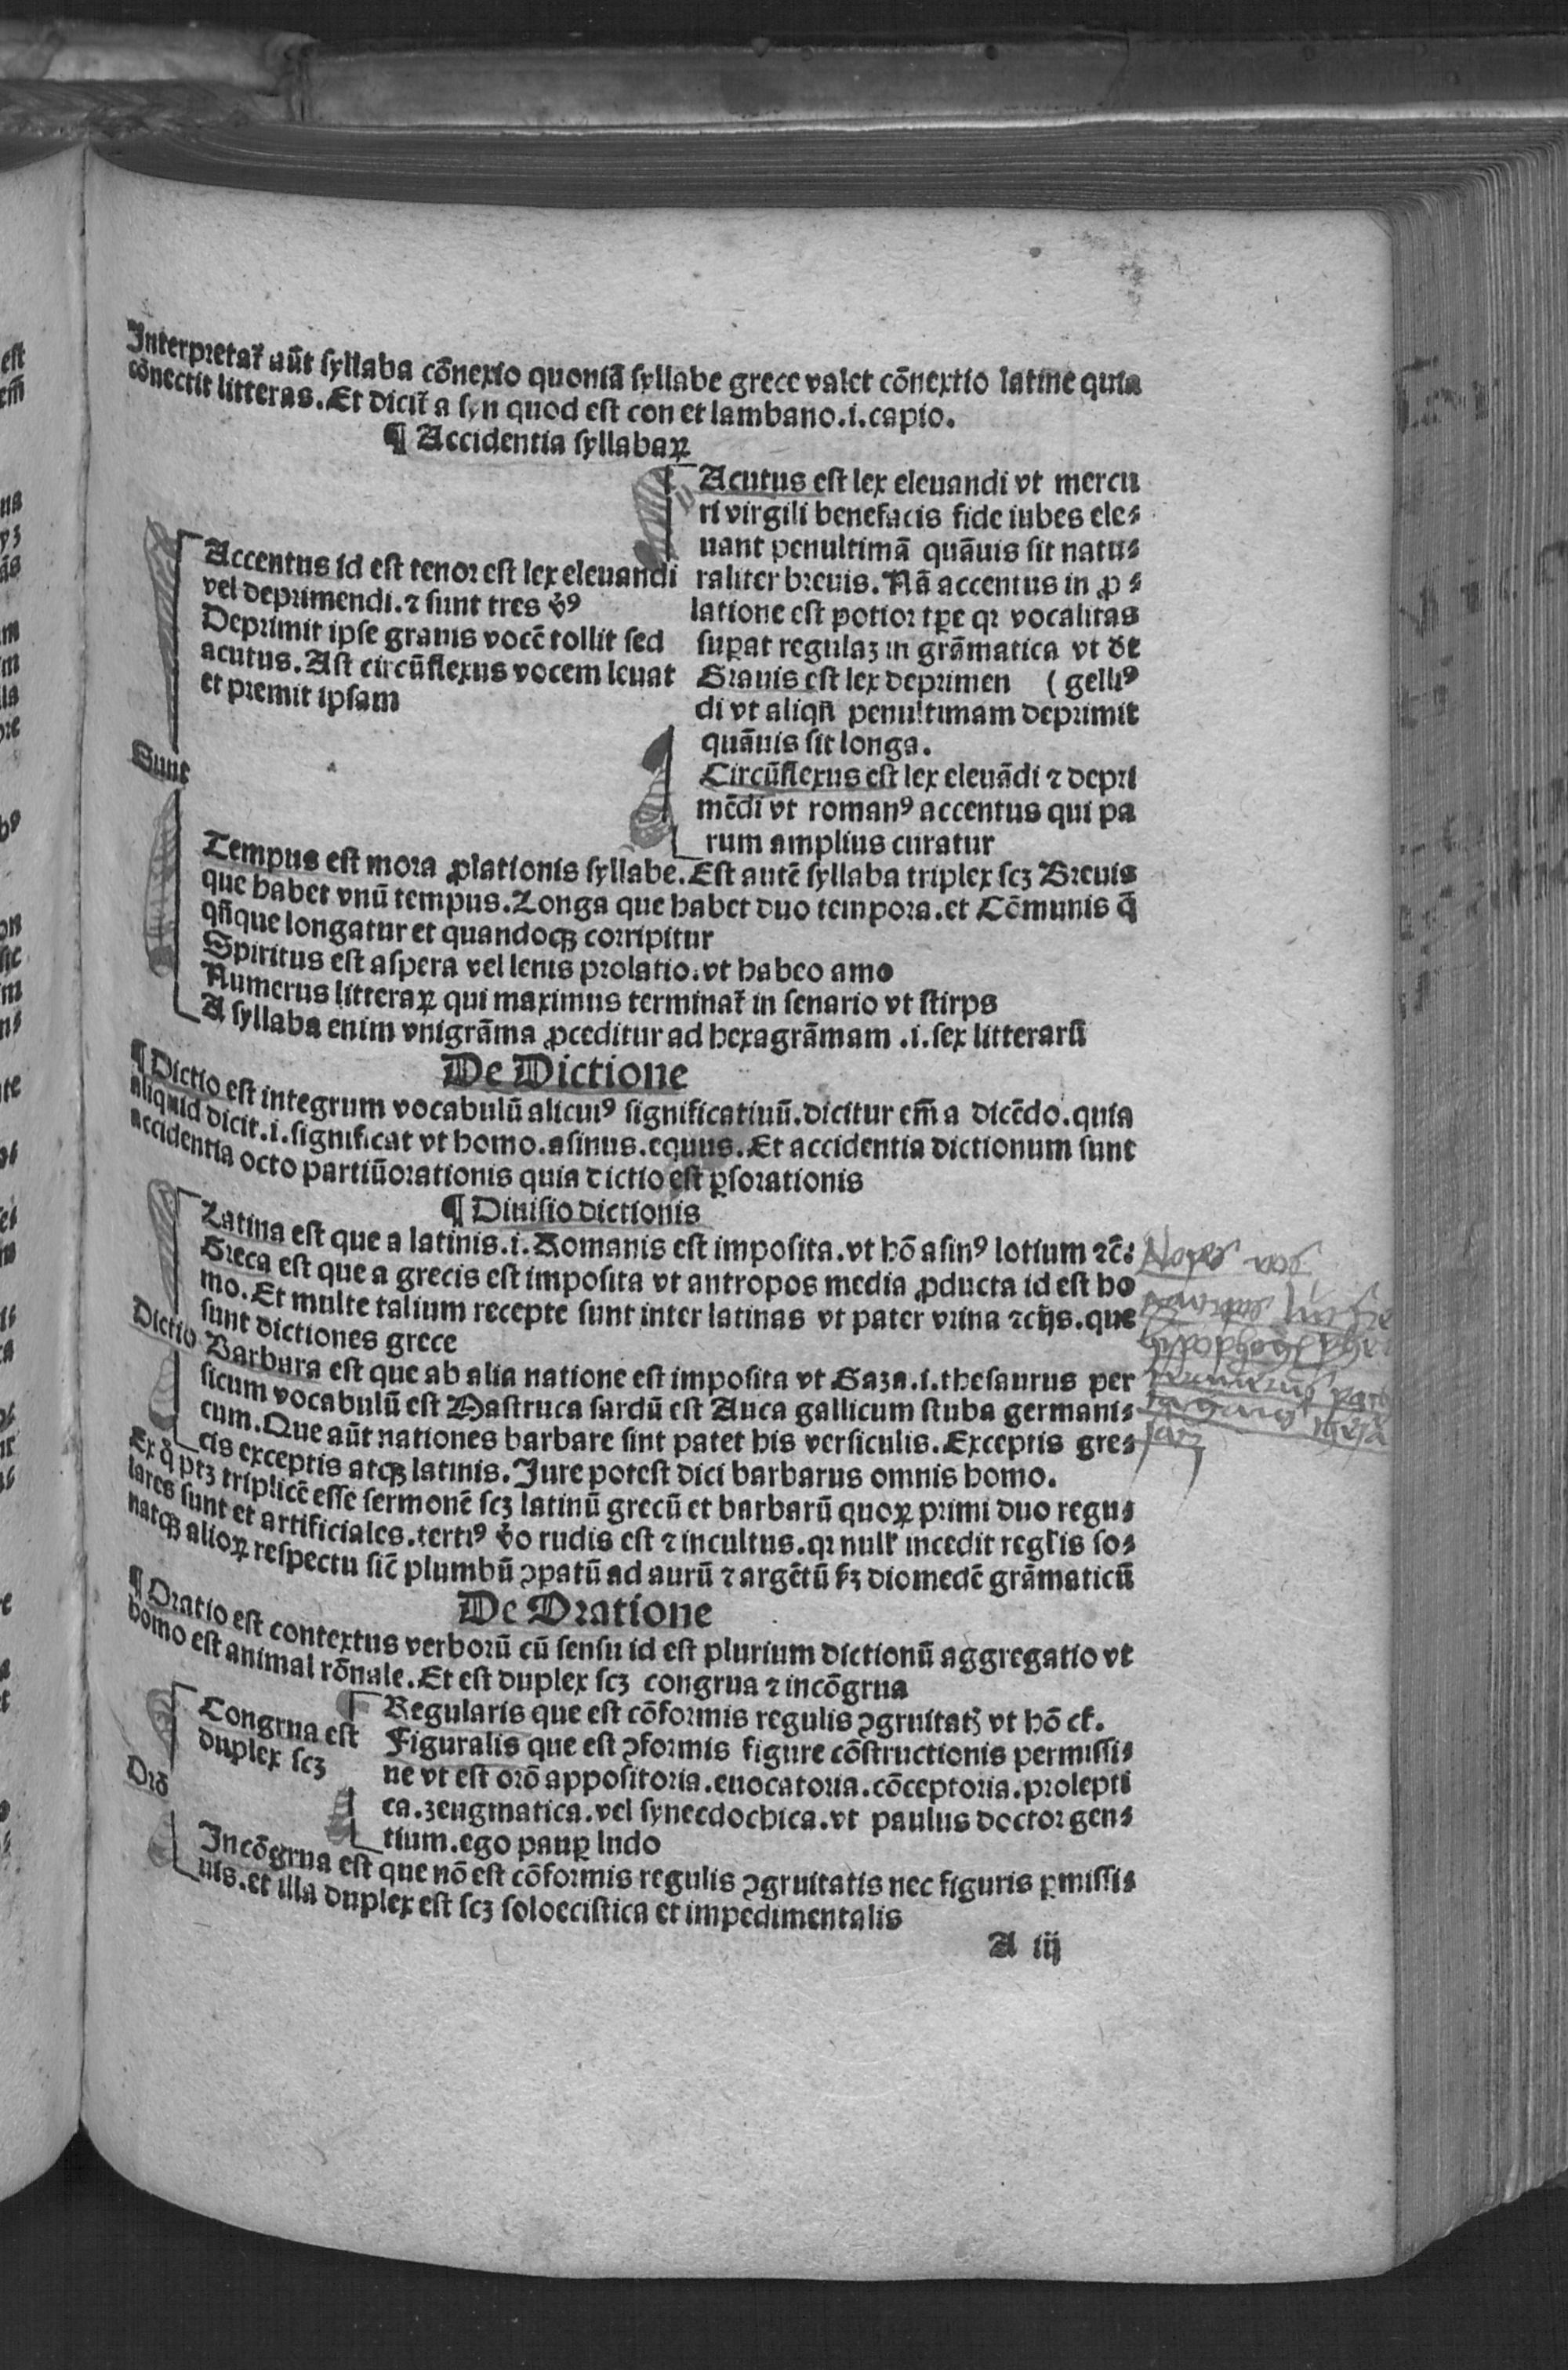 Interpretat̄ aūt syllaba cōnexio quoniā syllabe grece valet cōnextio latine quia
cōnectit litteras. Et dicit̄ a syn quod est con et lambano .i. capio.
¶ Accidentia syllabaꝝ
Accentus id est tenor est lex eleuandi
vel deprimendi. ⁊ sunt tres v̄ꝰ
Deprimit ipse grauis vocē tollit sed
acutus. Ast circūflexus vocem leuat
et premit ipsam
Acutus est lex eleuandi vt mercu
ri virgili benefacis fide iubes ele⸗
uant penultimā quāuis sit natu⸗
raliter breuis. Nā accentus in ꝓ⸗
latione est potior tꝑe qꝛ vocalitas
suꝑat regulaꝫ in grāmatica vt dt̄
Grauis est lex deprimen (gelliꝰ
di vt aliqn̄ penultimam deprimit
quāuis sit longa.
Circūflexus est lex eleuādi ⁊ depri
mēdi vt romanꝰ accentus qui pa
rum amplius curatur
Sunt
Tempus est mora ꝓlationis syllabe. Est autē syllaba triplex scꝫ Breuis
que habet vnū tempus. Longa que habet duo tempora. et Cōmunis q̄
qn̄que longatur et quandoqꝫ corripitur
Spiritus est aspera vel lenis prolatio. vt habeo amo
Numerus litteraꝝ qui maximus terminat̄ in senario vt stirps
A syllaba enim vnigrāma ꝓceditur ad hexagrāmam .i. sex litterarū
De Dictione
¶ Dictio est integrum vocabulū alicuiꝰ significatiuū. dicitur em̄ a dicēdo. quia
aliquid dicit .i. significat vt homo. asinus. equus. Et accidentia dictionum sunt
accidentia octo partiū orationis quia dictio est ꝑs orationis
¶ Diuisio dictionis
Latina est que a latinis .i. Romanis est imposita. vt hō asinꝰ lotium ⁊c̄⸗
Greca est que a grecis est imposita vt antropos media ꝓducta id est ho
mo. Et multe talium recepte sunt inter latinas vt pater vrina ⁊cijs. que
sunt dictiones grece
Dictio
Barbara est que ab alia natione est imposita vt Gaza .i. thesaurus per
sicum vocabulū est Mastruca sardū est Auca gallicum stuba germani⸗
cum. Que aūt nationes barbare sint patet his versiculis. Exceptis gre⸗
cis exceptis atqꝫ latinis. Jure potest dici barbarus omnis homo.
Ex q̊ ptꝫ triplicē esse sermonē scꝫ latinū grecū et barbarū quoꝝ primi duo regu⸗
lares sunt et artificiales. tertiꝰ v̊o rudis est ⁊ incultus. qꝛ nulł incedit regłis so⸗
natqꝫ alioꝝ respectu sic̄ plumbū ꝯpatū ad aurū ⁊ argētū ẜꝫ diomedē grāmaticū
De Oratione
¶ Oratio est contextus verborū cū sensu id est plurium dictionū aggregatio vt
homo est animal rōnale. Et est duplex scꝫ congrua ⁊ incōgrua
Congrua est
duplex scꝫ
Regularis que est cōformis regulis ꝯgruitatꝭ vt hō cł.
Figuralis que est ꝯformis figure cōstructionis permissi⸗
ne vt est orō appositoria. euocatoria. cōceptoria. prolepti
ca. zeugmatica. vel synecdochica. vt paulus doctor gen⸗
tium. ego pauꝑ ludo
Orō
Incōgrua est que nō est cōformis regulis ꝯgruitatis nec figuris ꝑmissi⸗
uis. et illa duplex est scꝫ soloecistica et impedimentalis
A iij